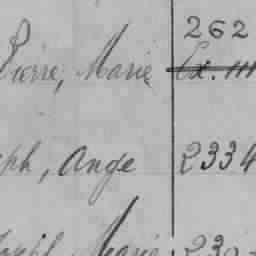 262
Pierre, Marie Ex. m
eph, Ange 2334
Joseph, Marie 230